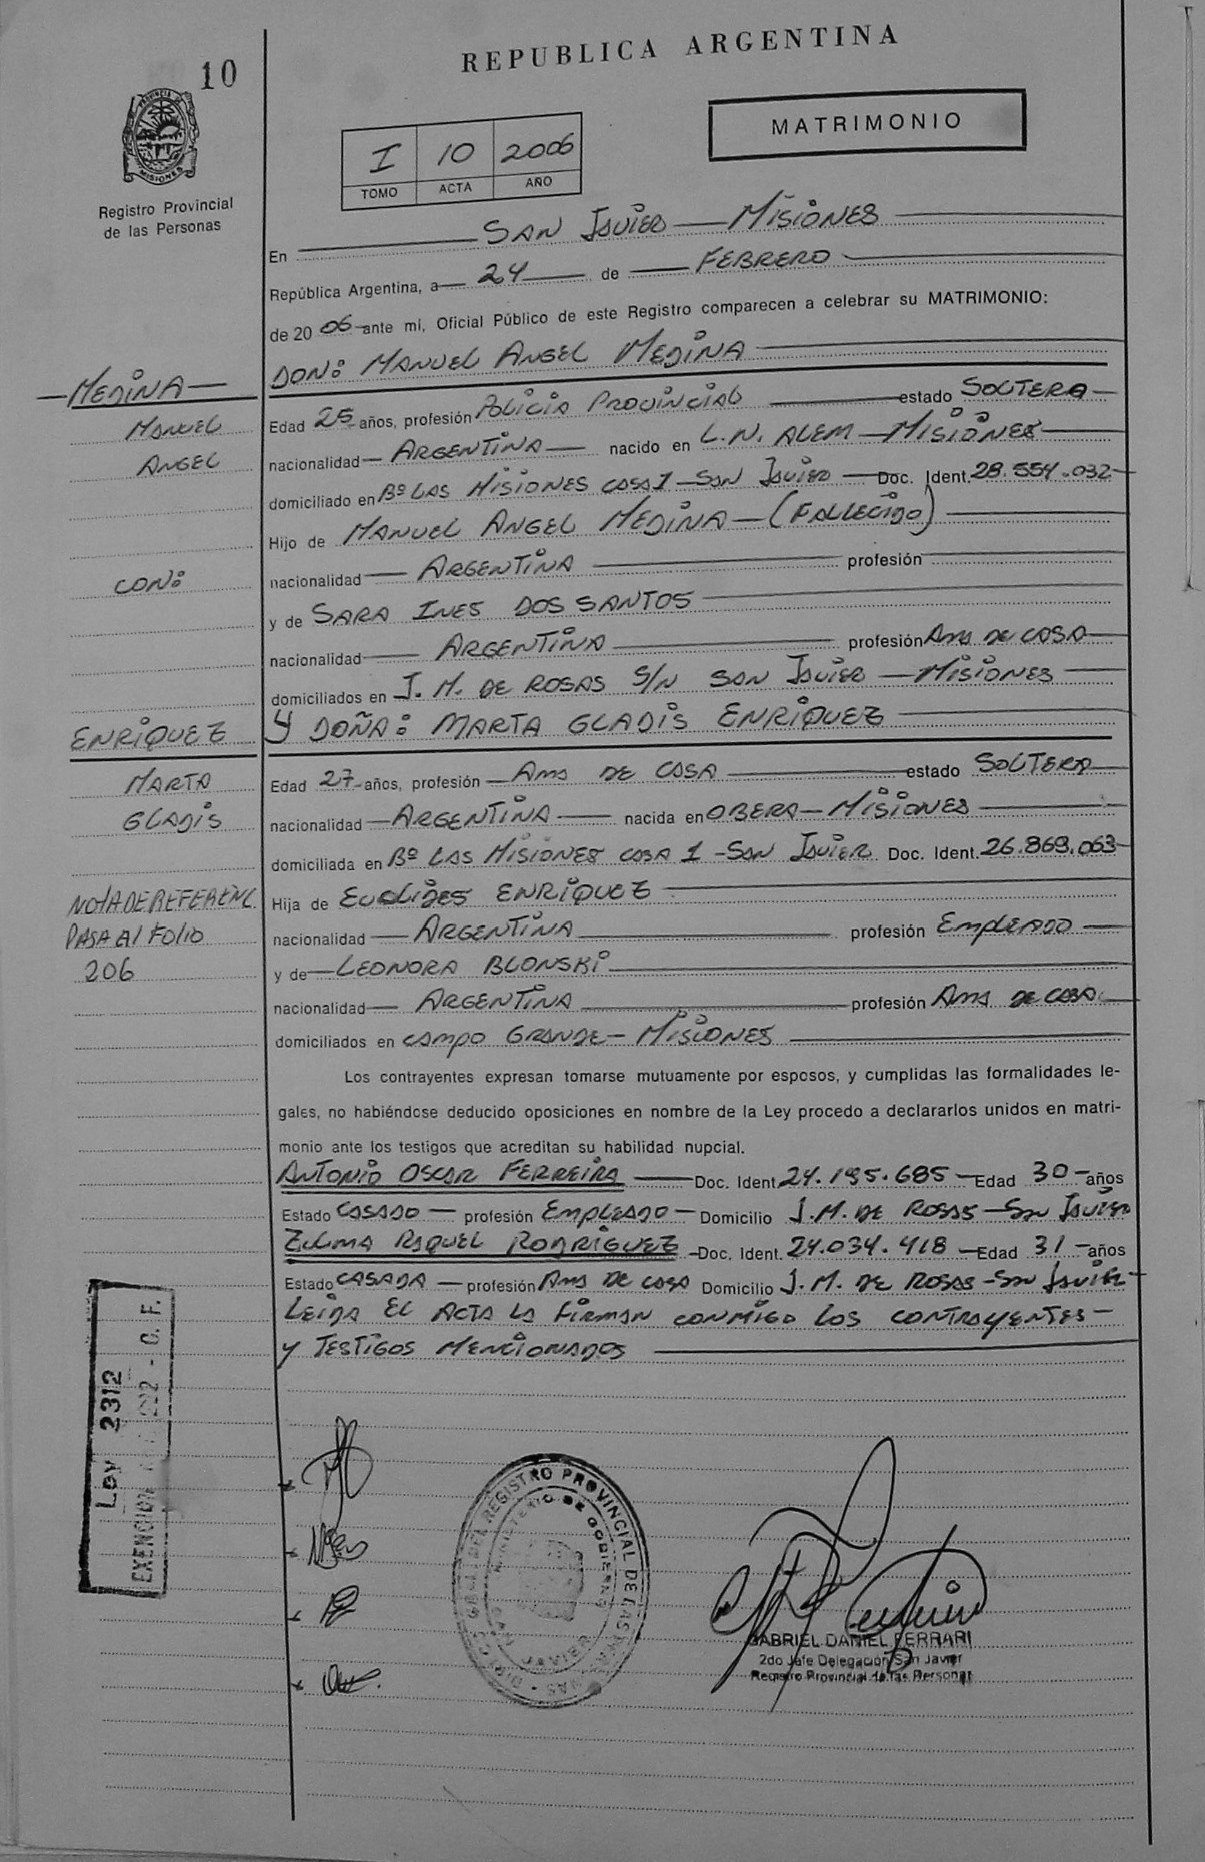 10
REPUBLICA ARGENTINA
PROVINCIA DE
MISIONES
Registro Provincial
de las Personas
MATRIMONIO
I 10 2006
TOMO ACTA AÑO
En SAN JAVIER — MISIONES
República Argentina, a 24 de FEBRERO
de 20 06 ante mí, Oficial Público de este Registro comparecen a celebrar su MATRIMONIO:
DON: MANUEL ANGEL MEDINA
MEDINA
MANUEL
ANGEL
CON:
Edad 25 años, profesión POLICIA PROVINCIAL estado SOLTERO
nacionalidad ARGENTINA nacido en L.N. ALEM — MISIONES
domiciliado en Bº LAS MISIONES CASA 1 — SAN JAVIER — Doc. Ident. 28.554.032
Hijo de MANUEL ANGEL MEDINA — (FALLECIDO)
nacionalidad ARGENTINA profesión
y de SARA INES DOS SANTOS
nacionalidad ARGENTINA profesión AMA DE CASA
domiciliados en J. M. DE ROSAS S/N SAN JAVIER — MISIONES
Y DOÑA: MARTA GLADIS ENRIQUEZ
ENRIQUEZ
MARTA
GLADIS
Edad 27 años, profesión AMA DE CASA estado SOLTERA
nacionalidad ARGENTINA nacida en OBERA — MISIONES
domiciliada en Bº LAS MISIONES CASA 1 — SAN JAVIER Doc. Ident. 26.869.063
Hija de EUCLIDES ENRIQUEZ
nacionalidad ARGENTINA profesión EMPLEADO
y de LEONORA BLONSKI
nacionalidad ARGENTINA profesión AMA DE CASA
domiciliados en CAMPO GRANDE — MISIONES
NOTA DE REFERENC.
PASA Al FOLIO
206
Los contrayentes expresan tomarse mutuamente por esposos, y cumplidas las formalidades le-
gales, no habiéndose deducido oposiciones en nombre de la Ley procedo a declararlos unidos en matri-
monio ante los testigos que acreditan su habilidad nupcial.
ANTONIO OSCAR FERREIRA — Doc. Ident. 24.195.685 — Edad 30 años
Estado CASADO — profesión EMPLEADO — Domicilio J.M. DE ROSAS — SAN JAVIER
ZULMA RAQUEL RODRIGUEZ — Doc. Ident. 24.034.418 — Edad 31 años
Estado CASADA — profesión AMA DE CASA Domicilio J. M. DE ROSAS — SAN JAVIER
LEIDA EL ACTA LA FIRMAN CONMIGO LOS CONTRAYENTES —
Y TESTIGOS MENCIONADOS
Ley 2312
EXENCION
DEL REGISTRO PROVINCIAL DE LAS
MINISTERIO DE GOBIERNO
SAN JAVIER
GABRIEL DANIEL FERRARI
2do Jefe Delegación San Javier
Registro Provincial de las Personas